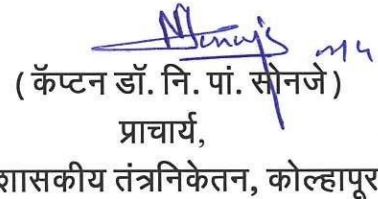 ( कॅप्टन डॉ. नि. पां. सोनजे )
प्राचार्य,
शासकीय तंत्रनिकेतन, कोल्हापूर